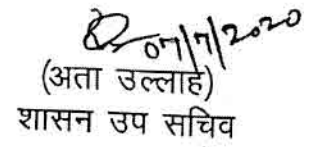 07/7/2020
(अता उल्लाह)
शासन उप सचिव